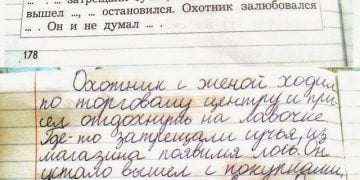 ... . ... затрещали су
вышел ..., ... остановился. Охотник залюбовался
... . Он и не думал ... .
178
Охотник с женой ходил
по торговому центру и при-
сел отдохнуть на лавочке.
Где-то затрещали сучья, из
магазина появился лось. Он
устало вышел с покупками,